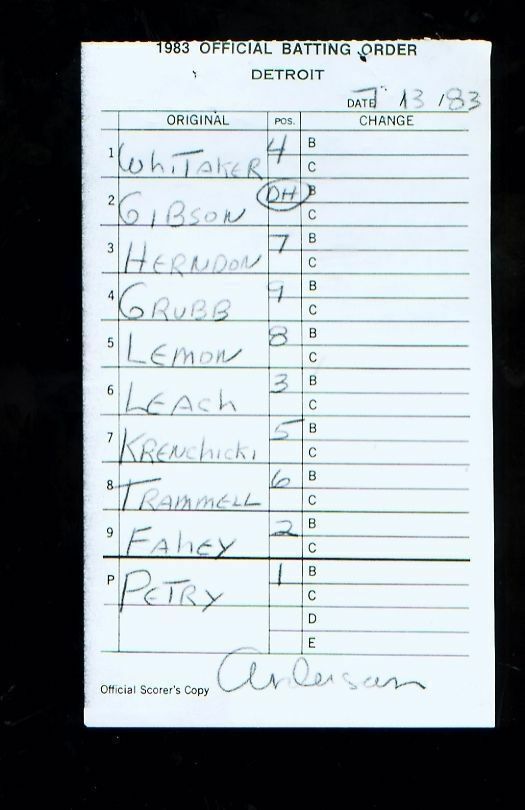 1983 OFFICIAL BATTING ORDER
DETROIT
DATE 7 13 /83
ORIGINAL POS. CHANGE
1 WhiTAKER 4 B
C
2 GIBSON DH B
C
3 HERNDON 7 B
C
4 GRUBB 9 B
C
5 LEMON 8 B
C
6 LEACh 3 B
C
7 KRENChicki 5 B
C
8 TRAMMELL 6 B
C
9 FAhEY 2 B
C
P PETRY 1 B
C
D
E
Official Scorer's Copy Anderson